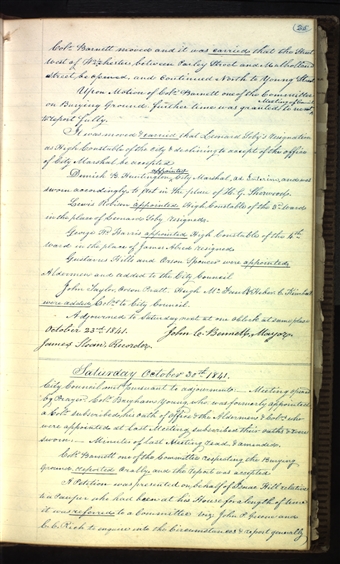 25
Col. Barnett moved and it was carried that the Street
west of Winchester, between Parley Street and Mulholland
Street, be opened, and continued North to Young Street
Upon Motion of Col. Barnett one of the Committee
on Burying Ground further time was granted to
Meeting of Council
to report fully.
It was moved & carried that Leonard Soby's resignation
as High Constable of the City & declining to accept of the office
of City Marshal be accepted
appointed
Dimick B. Huntington City Marshal, and was
sworn accordingly, to act in the place of H. G. Sherwood.
Lewis Robison appointed High Constable of the 3d ward
in the place of Leonard Soby resigned.
George W. Harris appointed High Constable of the 4th
ward in the place of James Allred resigned
Gustavus Hills and Orson Spencer were appointed
Aldermen and added to the City Council
John Taylor, Orson Pratt, Hugh McFall & Heber C. Kimball
were added Col. to City Council.
Adjourned to Saturday next at one o'clock at same place
October 23rd 1841. John C. Bennett, Mayor
James Sloan, Recorder
Saturday October 30th 1841.
City Council met pursuant to adjournment — Meeting opened
by Prayer. Col. Brigham Young, who was formerly appointed
a Col. subscribed his oath of office & the Aldermen & Col. who
were appointed at last Meeting subscribed their oaths & were
sworn — Minutes of last Meeting read, & amended.
Col. Barnett one of the Committee respecting the Burying
Ground, reported orally and the report was accepted.
A Petition was presented on behalf of Hill relative
to a Pauper who had been at his House for a length of time
it was referred to a Committee viz. John P. Greene and
C. C. Rich to enquire into the Circumstances & report generally